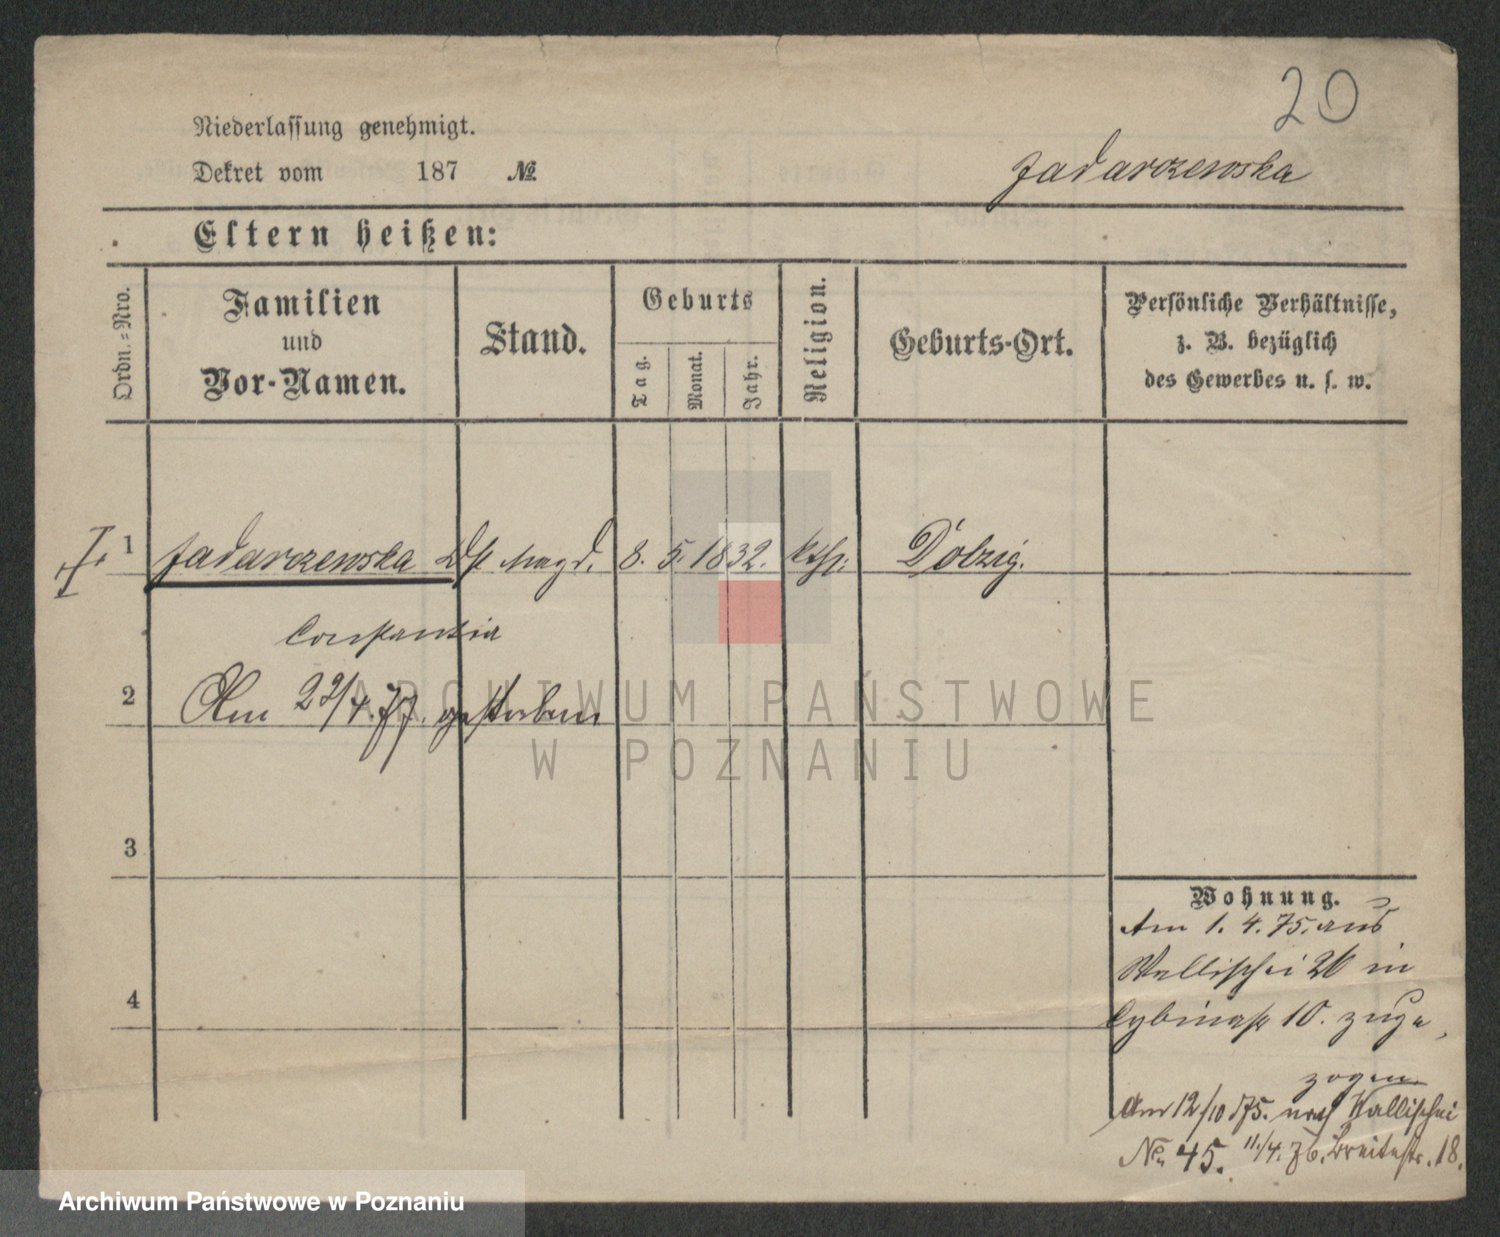 20
Niederlassung genehmigt.
Dekret vom 187 №
Jadarczewska
Eltern heißen:
Ordn.-Nro.
Familien
und
Vor-Namen.
Stand.
Geburts
Tag.
Monat.
Jahr.
Religion.
Geburts-Ort.
Persönliche Verhältnisse,
z. B. bezüglich
des Gewerbes u. s. w.
1 Jadarczewska Dst Magd. 8. 5. 1832. kath: Dolzig.
Constantia
2 Am 22/4.77. gestorben
3
4
Wohnung.
Am 1. 4. 75. aus
Wallischei 26 in
Cybinastr 10. zuge
zogen
Am 12/10 75. nach Wallischei
No 45. 11./4. 76. Breitestr. 18.
ARCHIWUM PAŃSTWOWE
W POZNANIU
Archiwum Państwowe w Poznaniu